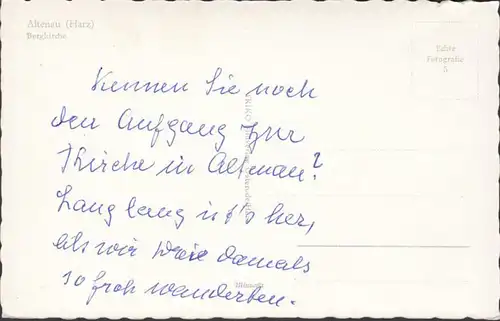 Altenau (Harz)
Bergkirche
Echte
Fotografie
Kennen Sie noch
den Aufgang zur
Kirche in Altenau?
Lang lang ist's her,
als wir damals
so froh wanderten.